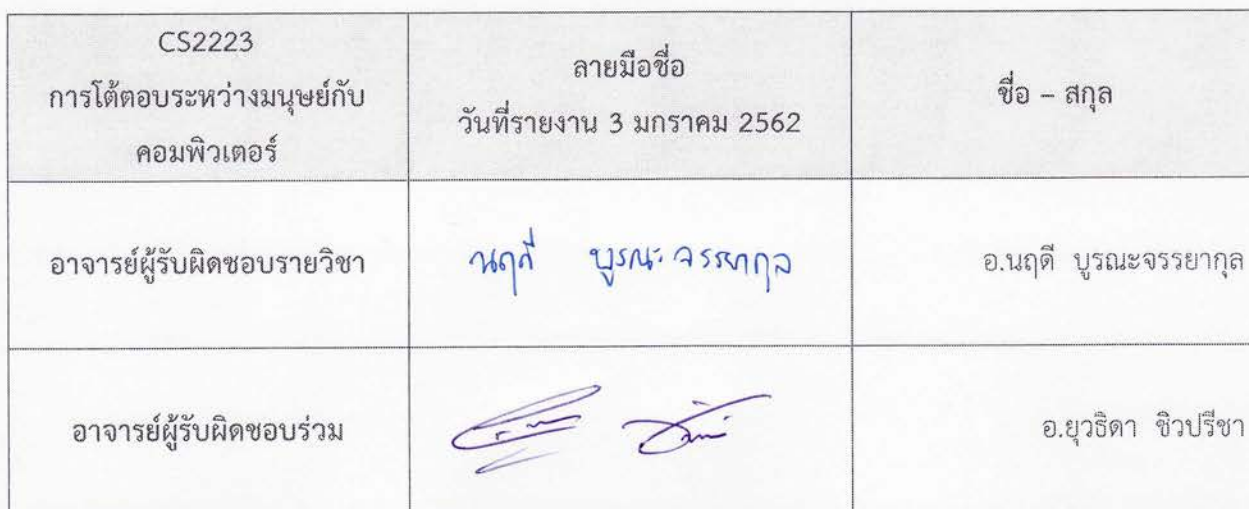 CS2223
การโต้ตอบระหว่างมนุษย์กับ
คอมพิวเตอร์
ลายมือชื่อ
วันที่รายงาน 3 มกราคม 2562
ชื่อ – สกุล
อาจารย์ผู้รับผิดชอบรายวิชา
นฤดี บูรณะจรรยากุล
อ.นฤดี บูรณะจรรยากุล
อาจารย์ผู้รับผิดชอบร่วม
อ.ยุวธิดา ชิวปรีชา